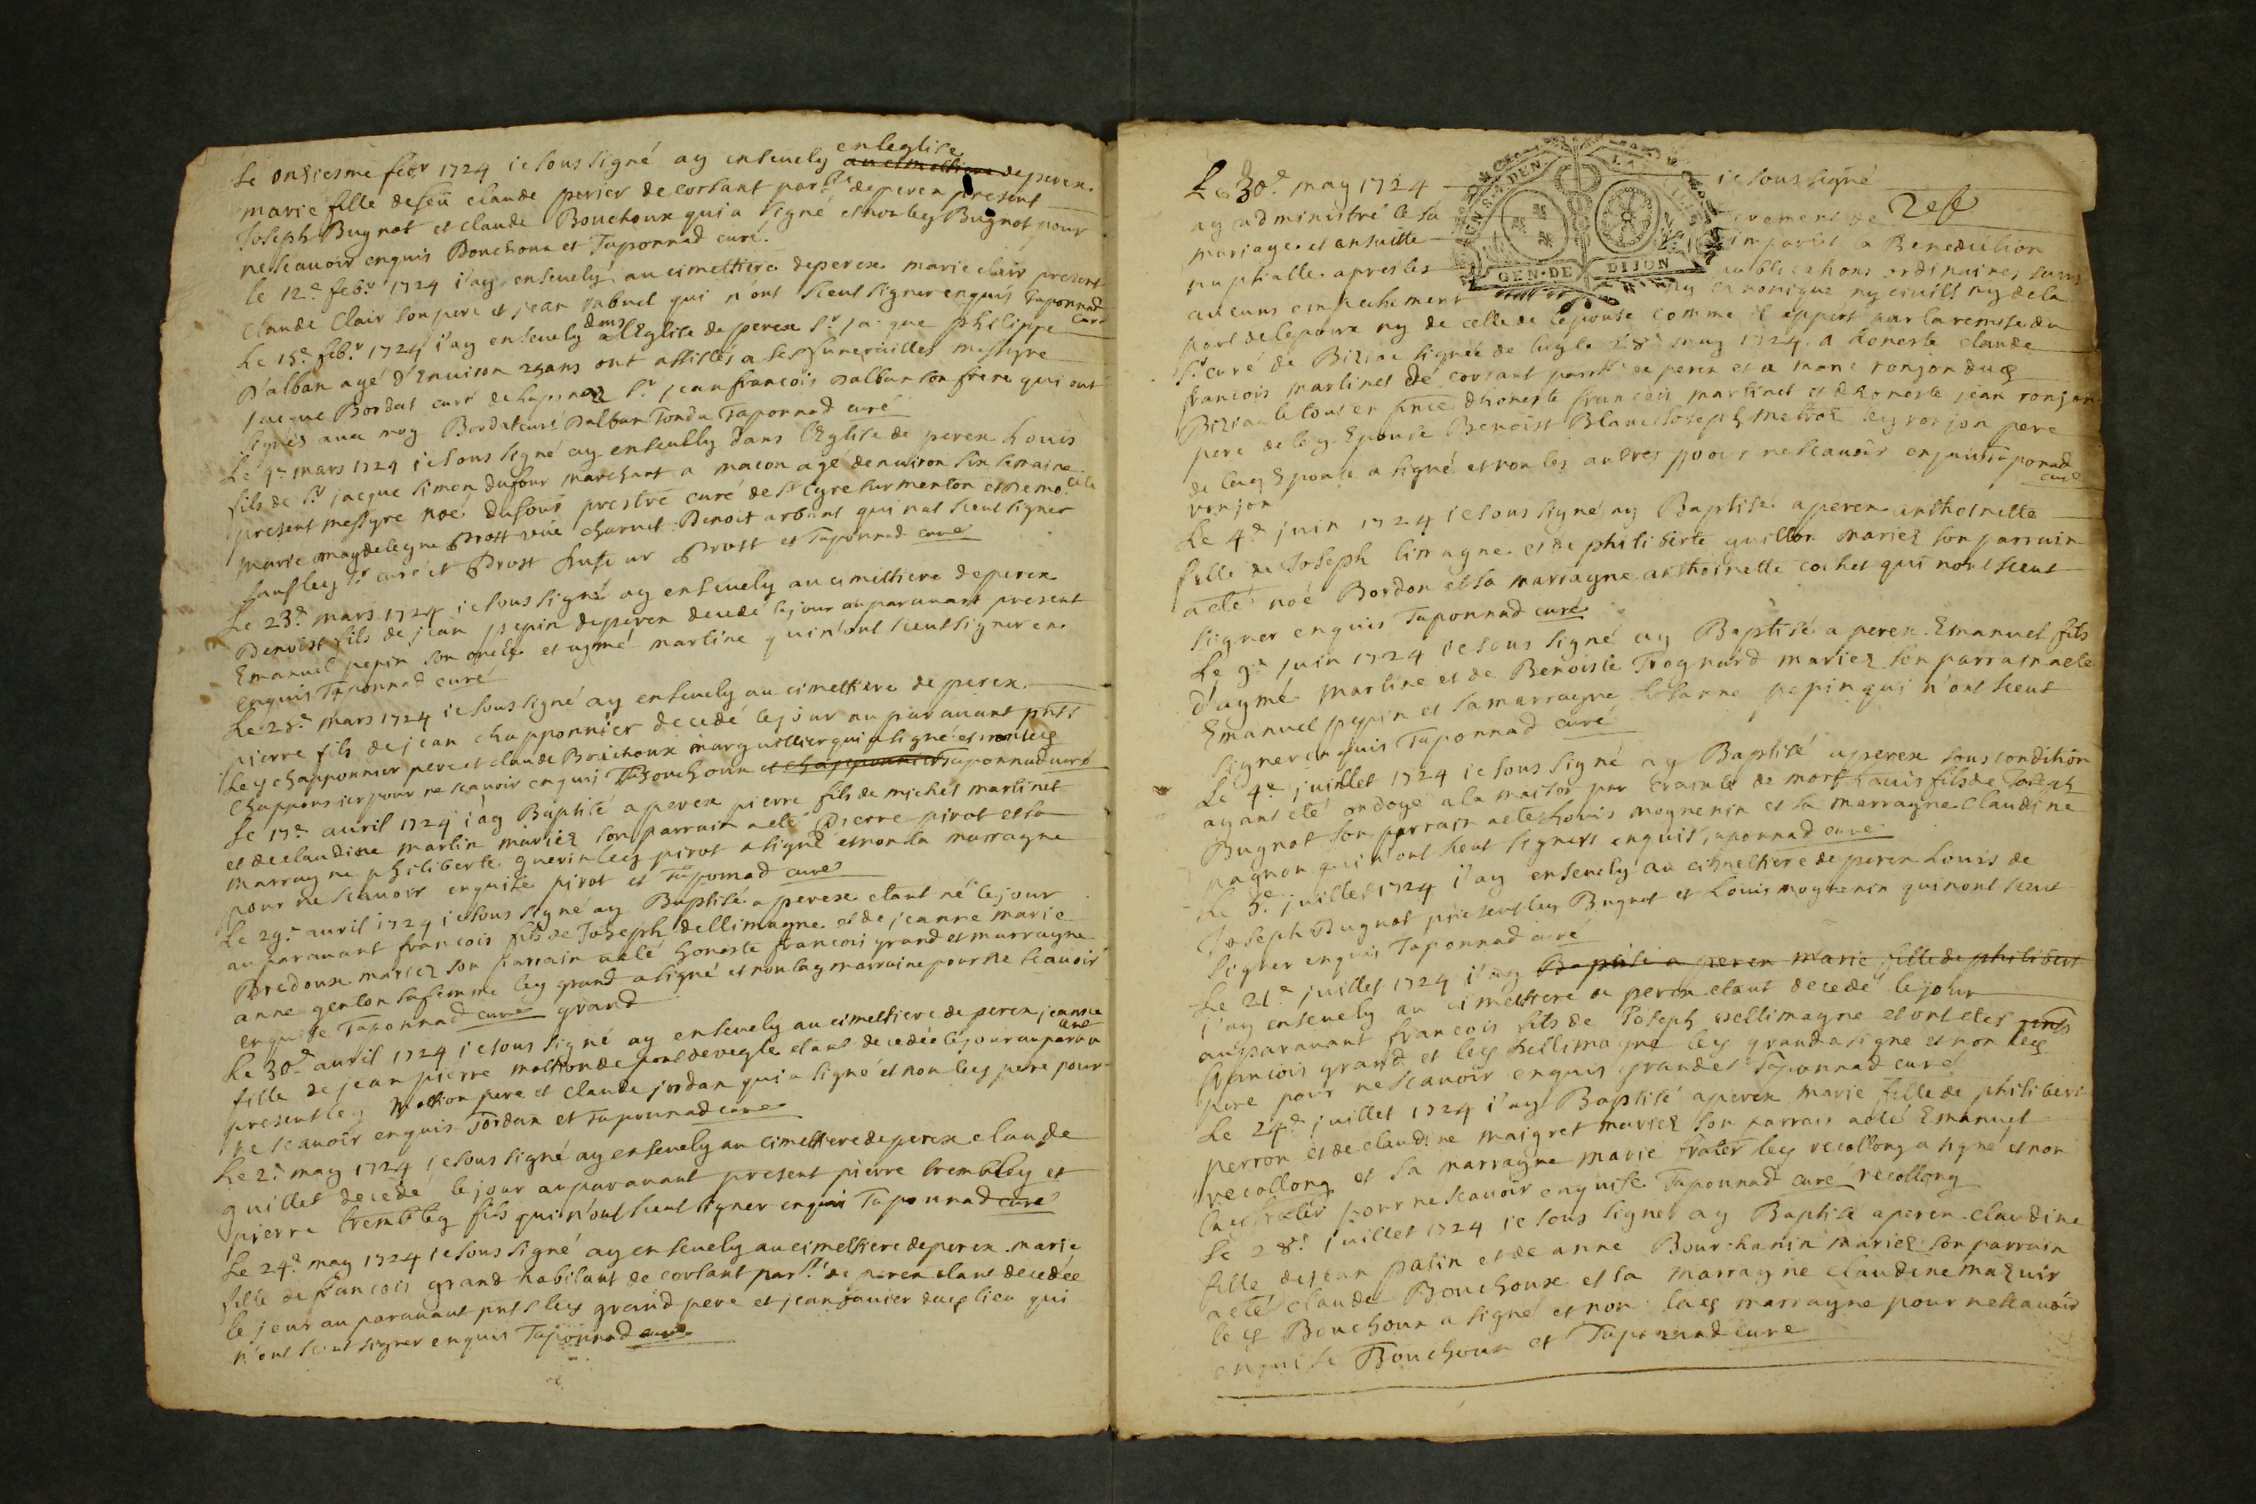 Le onziesme febr 1724 ie sous signé ay ensevely en leglise au cimettiere de perex
marie fille de feu claude perier de corsant parsse de perex present
Joseph Bugnot et claude Bouchoux qui a signé et non ley Bugnot pour
ne scavoir enquis Bouchoux et Taponnad curé.
le 12e febr 1724 i'ay ensevely au cimettiere de perex marie clair present
claude clair son pere et jean qui n'ont sceut signer enquis Taponnad curé
Le 15e febr 1724 i'ay ensevely dans l'Eglise de perex Sr jacque philippe
D'alban agé d'Environ 24 ans ont assistés a ses funerailles messyre
jacque Bordat curé de Sr jean francois Dalban son frere qui ont
signés avec moy Bordat curé Dalban Tondu Taponnad curé
Le mars 1724 ie sous signé ay ensevely dans l'Eglise de perex Louis
fils de Sr jacque simon dufour marchant a macon agé d'environ semaine
present messyre noé dufour prestre curé de St Cyre sur menton et de
marie magdeleyne Prost charvet Benoit arband qui n'at sceut signer
Sr curé et Prost dufour Prost et Taponnad curé
Le 23e mars 1724 ie sous signé ay ensevely au cimettiere de perex
Benoist fils de jean pepin de perex decedé le jour auparavant present
Emanuel pepin son oncle et aymé martine qui n'ont sceut signer en
enquis Taponnad curé
Le 25e mars 1724 ie sous signé ay ensevely au cimettiere de perex
pierre fils de jean chapponnier decedé le jour auparavant pnts
ley chapponnier pere et claude Bouchoux marguillier qui a signé et non ley
chapponnier pour ne scavoir enquis Bouchoux et chapponnier Taponnad curé
Le 17e avril 1724 i'ay Baptisé a perex pierre fils de michel martinet
et de claudine martin mariez son parrain a eté pierre pirot et sa
marrayne philiberte guerin ley pirot a signé et non la marrayne
pour ne scavoir enquise pirot et Taponnad curé
Le 29e avril 1724 ie sous signé ay Baptisé a perex etant né le jour
auparavant francois fils de Joseph dellimagne et de jeanne marie
Bredoux mariez son parrain a eté honeste francois grand et marrayne
anne genton sa femme ley grand a signé et non lay marraine pour ne scavoir
enquise Taponnad curé grand
Le 30e avril 1724 ie sous signé ay ensevely au cimettiere de perex jeanne
fille de jean pierre mottion de pont de vegle etant decedée le jour auparavant
present ley mottion pere et claude jordan qui a signé et non ley pere pour
ne scavoir enquis Jordan et Taponnad curé
Le 2e may 1724 ie sous signé ay ensevely au cimettiere de perex claude
guillet decedé le jour auparavant present pierre trembley et
pierre trembley fils qui n'ont sceut signer enquis Taponnad curé
Le 24e may 1724 ie sous signé ay ensevely au cimettiere de perex marie
fille de francois grand habitant de corsant parsse de perex etant decedée
le jour auparavant pnts ley grand pere et jean janier dudit lieu qui
n'ont sceut signer enquis Taponnad curé
Le 30e may 1724 ie sous signé
ay administré le sa crement de
mariage et ensuitte imparti la Benediction
nuptialle apres les publications ordinaires sans
aucuns empechement ny canonique ny civil ny de la
part de lepoux ny de celle de lepouse comme il appert par la remise du
Sr curé de Biziat signée de luy le 28e may 1724 a honeste claude
francois martinet de corsant parsse de perex et a ronjon du
Biziat le tout en pnce d'honeste francois martinet et d'honeste jean ronjon
pere de ley Epouse Benoist Blanc Joseph ley ronjon pere
de lay Epouse a signé et non les autres pour ne scavoir enquis Taponnad curé
ronjon
Le 4e juin 1724 ie sous signé ay Baptisé a perex anthoinette
fille de Joseph et de philiberte guillon mariez son parrain
a eté noé Bordon et sa marrayne anthoinette cochet qui n'ont sceut
signer enquis Taponnad curé
Le 9e juin 1724 ie sous signé ay Baptisé a perex Emanuel fils
d'aymé martine et de Benoiste Trognard mariez son parrain a eté
Emanuel pepin et sa marrayne pepin qui n'ont sceut
signer enquis Taponnad curé
Le 4e juillet 1724 ie sous signé ay Baptisé a perex sous condition
ayant eté ondoyé a la maison par crainte de mort Louis fils de Joseph
Bugnot son parrain a eté Louis moynenin et sa marrayne claudine
pagnon qui n'ont sceut signer enquis Taponnad curé
Le 5e juillet 1724 i'ay ensevely au cimettiere de perex Louis de
Joseph Bugnot present ley Bugnot et Louis moynenin qui n'ont sceut
signer enquis Taponnad curé
Le 21e juillet 1724 i'ay Baptisé a perex marie fille de philibert
j'ay ensevely au cimettiere de perex etant decedé le jour
auparavant francois fils de Joseph dellimagne et ont etes pnts
francois grand et ley dellimagne ley grand a signé et non ley
pere pour ne scavoir enquis grand et Taponnad curé
Le 24e juillet 1724 i'ay Baptisé a perex marie fille de philibert
perron et de claudine maigret mariez son parrain a eté Emanuel
recollong et sa marrayne marie frater ley recollong a signé et non
lay frater pour ne scavoir enquise Taponnad curé recollong
Le 28e juillet 1724 ie sous signé ay Baptisé a perex claudine
fille de jean patin et de anne Bourchanin mariez son parrain
a eté claude Bouchoux et sa marrayne claudine mazuir
ley Bouchoux a signé et non lay marrayne pour ne scavoir
enquise Bouchoux et Taponnad curé
GEN·DE DIJON